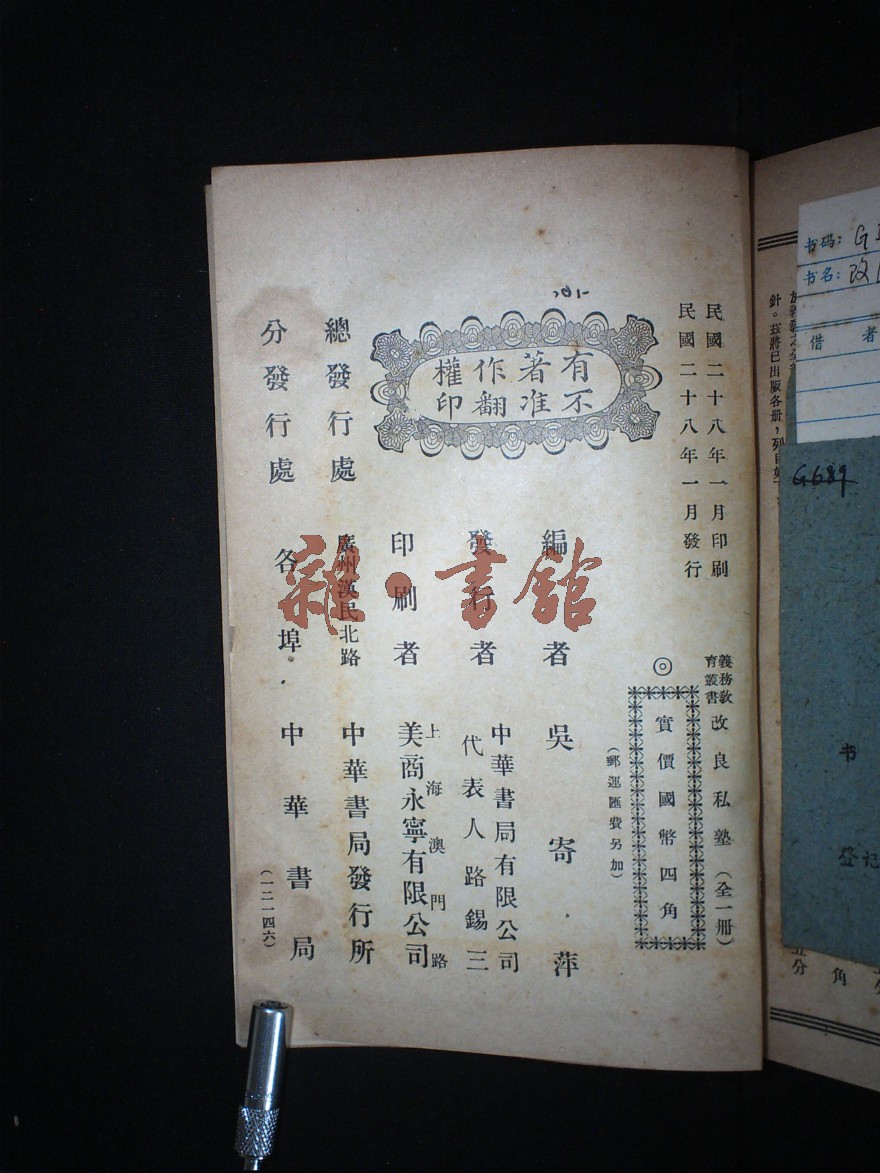 民國二十八年一月印刷
民國二十八年一月發行
義務教
育叢書
改良私塾（全一冊）
◎
實價國幣四角
（郵運匯費另加）
有著作權
不准翻印
編者 吳寄萍
發行者 中華書局有限公司
代表人路錫三
印刷者 上海澳門路
美商永寧有限公司
總發行處 廣州漢民北路
中華書局發行所
分發行處 各埠中華書局
（一二一四六）
雜·書館
书码：G
书名：改
借 者
G689
书
登记
針。茲將已出版各册，列目如
五分
角